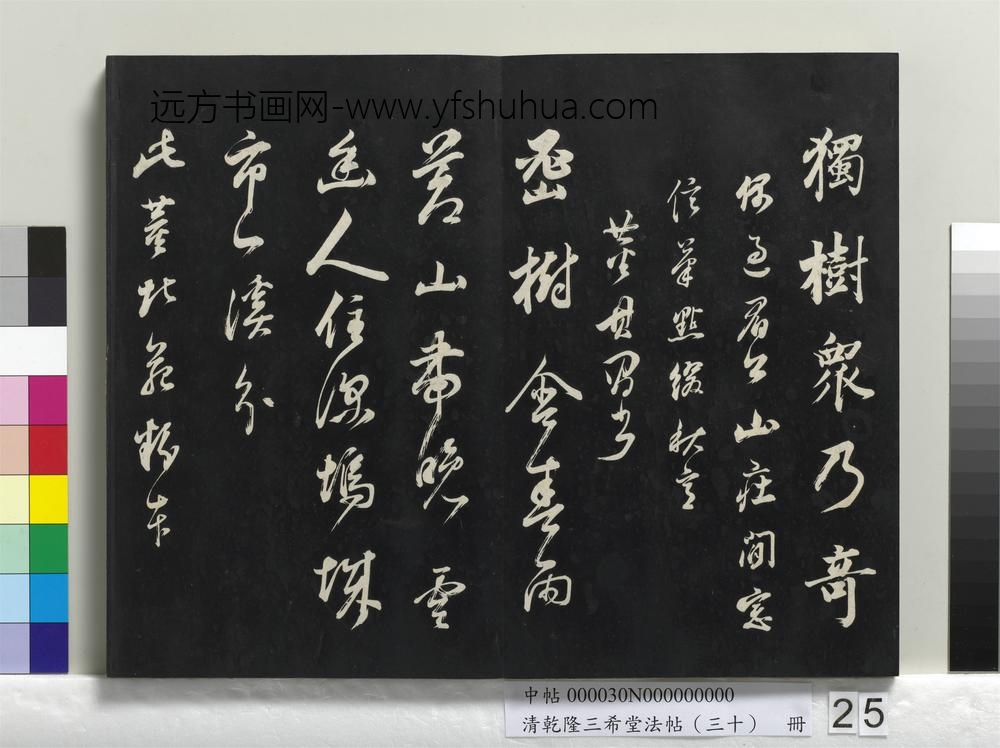 远方书画网-www.yfshuhua.com
獨樹眾乃奇
偶過眉公山莊閒窓
信筆點綴秋
董其昌書
密樹含春雨
蒼山帶晚雲
幽人住深塢城
市以溪分
此董北苑粉本
中帖 000030N000000000
清乾隆三希堂法帖（三十） 冊
25